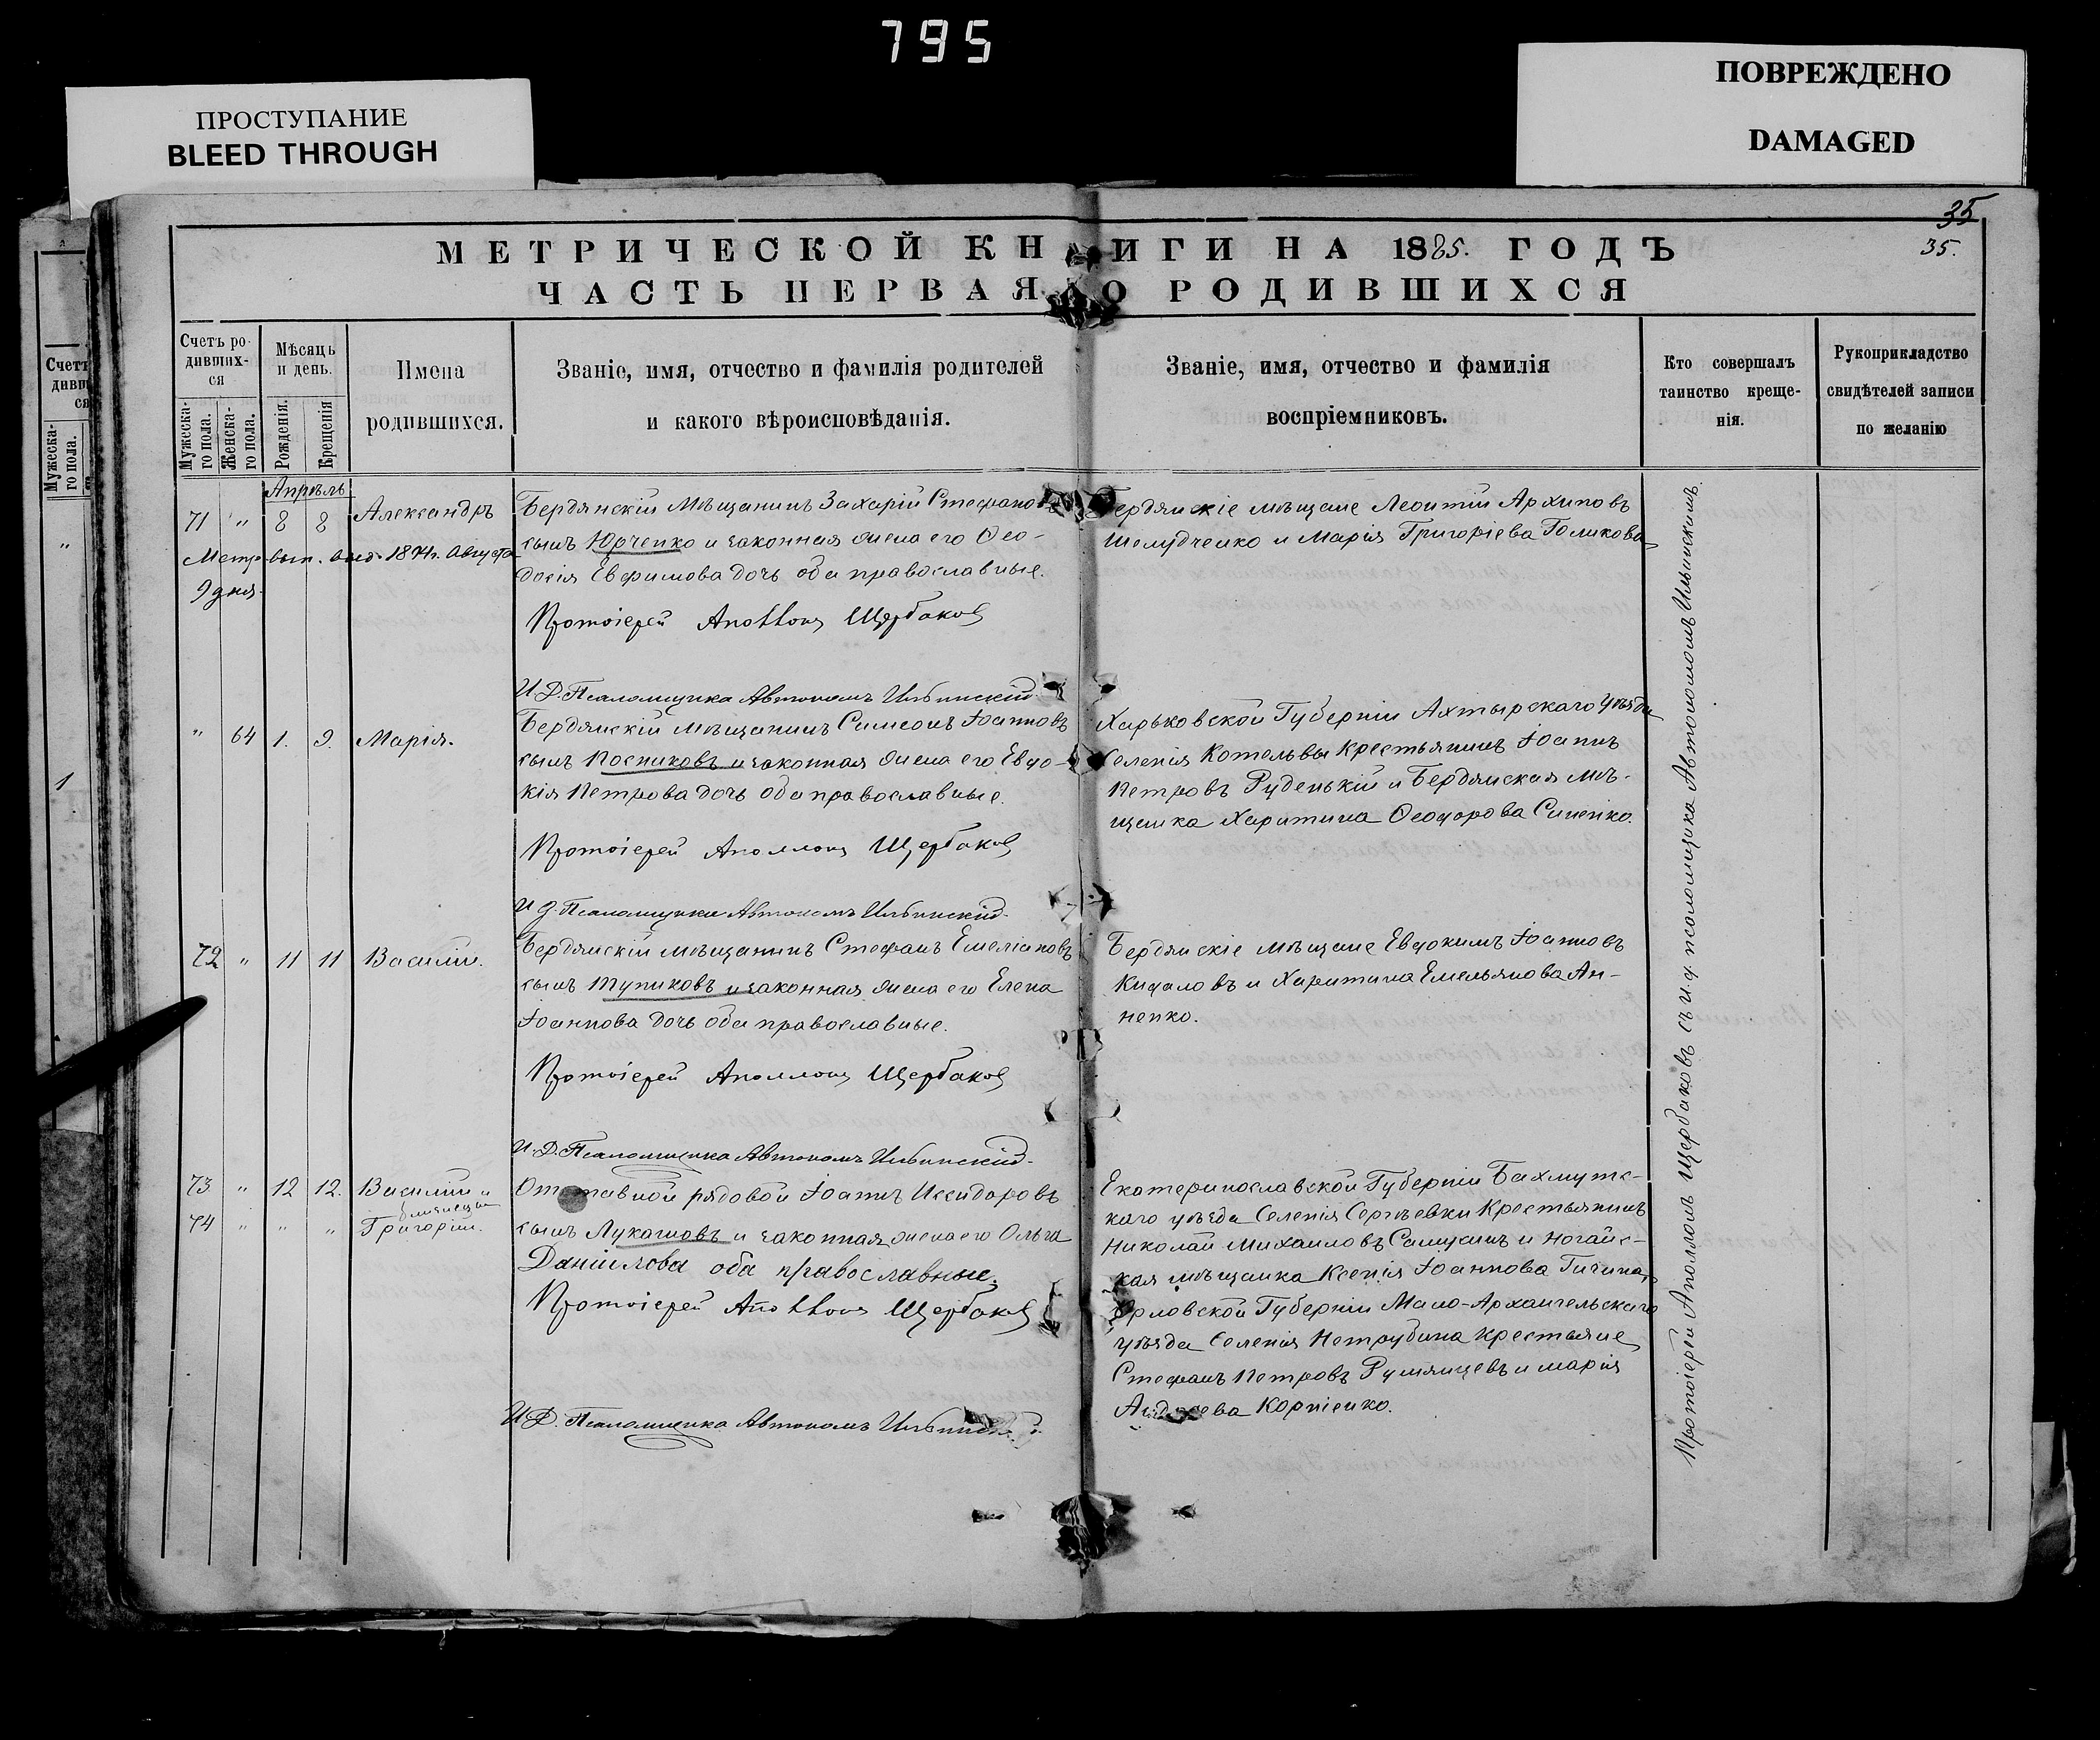 795
ПРОСТУПАНИЕ
BLEED THROUGH
ПОВРЕЖДЕНО
DAMAGED
35
35.
МЕТРИЧЕСКОЙ КНИГИ НА 1885. ГОДЪ
ЧАСТЬ ПЕРВАЯ О РОДИВШИХСЯ
Счетъ ро-
дивших-
ся
Мужеска-
го пола.
Женска-
го пола.
Мѣсяць
и день.
Рожденія.
Крещенія
Имена
родившихся.
Званіе, имя, отчество и фамилія родителей
и какого вѣроисповѣданія.
Званіе, имя, отчество и фамилія
воспріемниковъ.
Кто совершалъ
таинство креще-
нія.
Рукоприкладство
свидѣтелей записи
по желанію
Апрѣль
71 " 8 8 Александръ
Метр. вып. выд. 1894г. Августа
9 дня.
Бердянскій Мѣщанинъ Захарій Стефановъ
сынъ Юрченко и законная жена его Ѳео-
досія Евфимова дочь оба православные.
Протоіерей Аполлонъ Щербаковъ
И.Д. Псаломщика Автономъ Ильинскій.
Бердянскіе мѣщане Леонтій Архиповъ
Шелудченко и Марія Григоріева Голикова
" 64 1. 9. Марія.
Бердянскій мѣщанинъ Симеонъ Іоанновъ
сынъ Посниковъ и законная жена его Евдо-
кія Петрова дочь оба православные.
Протоіерей Аполлонъ Щербаковъ
И.д. Псаломщика Автономъ Ильинскій.
Харьковской Губерніи Ахтырскаго Уѣзда
Селенія Котельвы Крестьянинъ Іоаннъ
Петровъ Руденькій и Бердянская мѣ-
щанка Харитина Ѳеодорова Синенко.
72 " 11 11 Василій.
Бердянскій мѣщанинъ Стефанъ Емеліановъ
сынъ Тупиковъ и законная жена его Елена
Іоаннова дочь оба православные.
Протоіерей Аполлонъ Щербаковъ
И.Д. Псаломщика Автономъ Ильинскій.
Бердянскіе мѣщане Евдокимъ Іоанновъ
Кидаловъ и Харитина Емельянова Ан-
ненко.
73 " 12 12. Василій и
близнецы
74 " " " Григорій.
Отставной рядовой Іоаннъ Исидоровъ
сынъ Лукашовъ и законная жена его Ольга
Даниилова оба православные.
Протоіерей Аполлонъ Щербаковъ
И.Д. Псаломщика Автономъ Ильинскій.
Екатеринославской Губерніи Бахмутс-
каго уѣзда Селенія Сергѣевки Крестьянинъ
Николай Михаиловъ и Ногайс-
кая мѣщанка Ксенія Іоаннова
Орловской Губерніи Мало-Архангельскаго
уѣзда Селенія Крестьяне
Стефанъ Петровъ Румянцевъ и Марія
Андреева Корніенко.
Протоіерей Аполлонъ Щербаковъ съ и.д. псаломщика Автономомъ Ильинскимъ.
Счетъ
дивш
ся
Мужеска-
го пола.
"
1